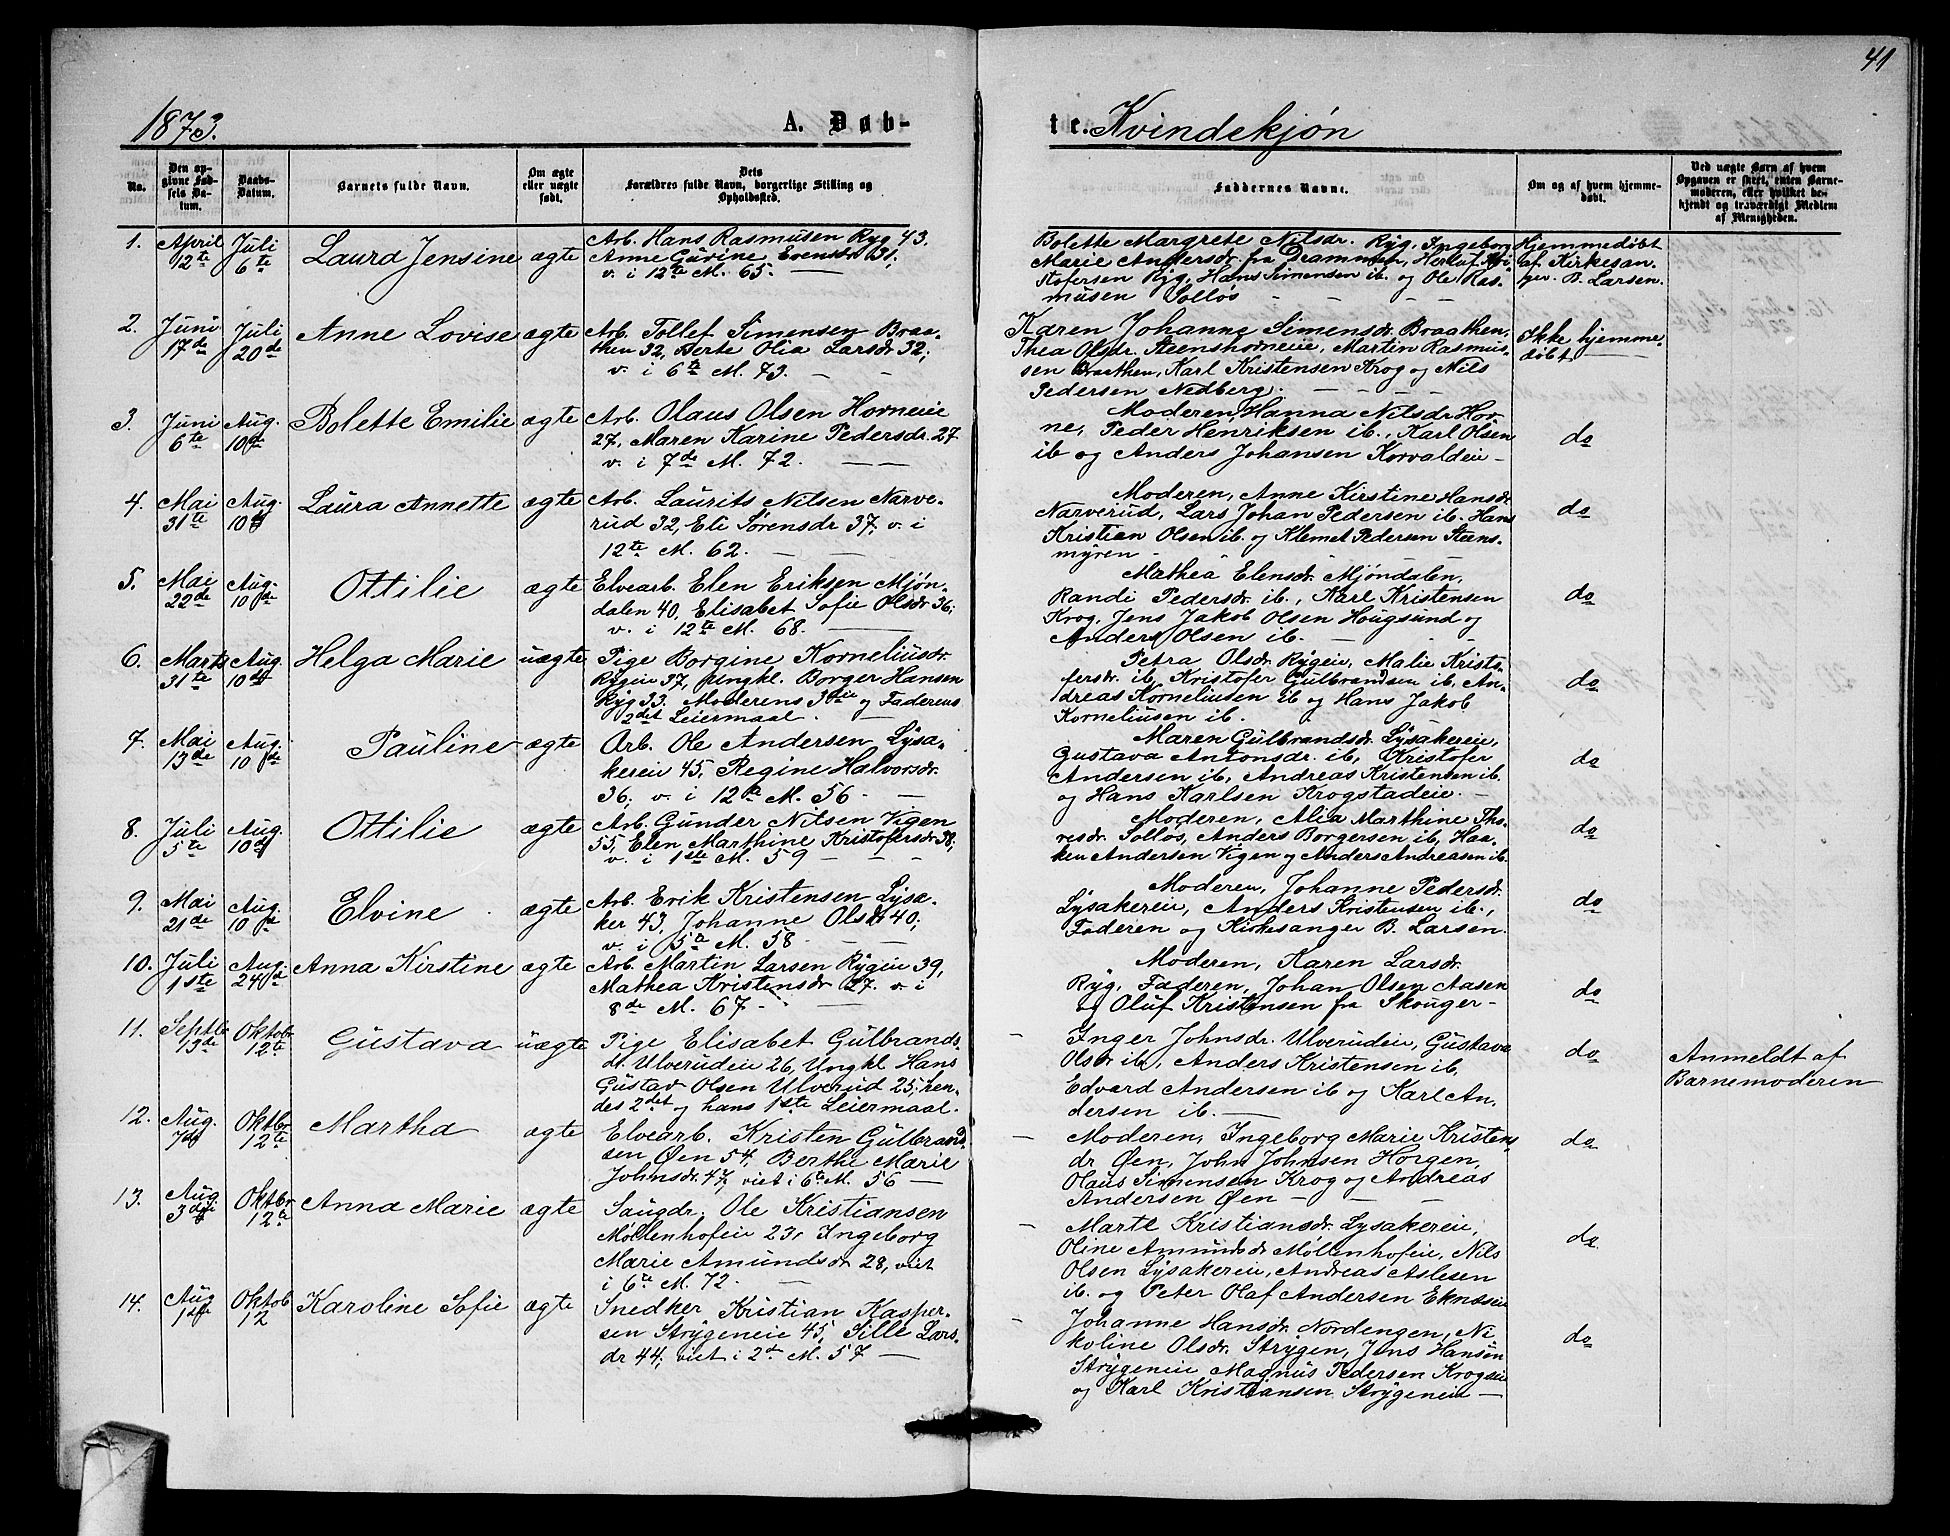 41
1873.
A. Døb-
te. Kvindekjøn
No.
Den op-
givne Fød-
sels Da-
tum.
Daabs-
Datum.
Barnets fulde Navn.
Om ægte
eller uægte
født.
Dets
Forældres fulde Navn, borgerlige Stilling og
Opholdssted.
Faddernes Navne.
Om og af hvem hjemme-
døbt.
Ved uægte Børn af hvem
Opgaven er skeet, enten Barne-
moderen, eller hvilket be-
kjendt og troværdigt Medlem
af Menigheden.
1. April 12te Juli 6te Laura Jensine ægte
Arb. Hans Rasmusen Ryg 43,
Anne Gurine Evensdr 31;
v. i 12te M. 65.
Bolette Margrete Nilsdr. Ryg, Ingeborg
Marie Andersdr. fra Drammen, Herlof Kri-
stofersen Ryg, Hans Simensen ib. og Ole Ras-
musen Solløs
Hjemmedøbt
af Kirkesan-
ger B. Larsen.
2. Juni 17de Juli 20de Anne Lovise ægte
Arb. Tollef Simensen Braa-
then 32, Berte Olia Larsdr 32;
v. i 6te M. 73.
Karen Johanne Simensdr. Braathen,
Thea Olsdr. Steenshorneie, Martin Rasmus-
sen Braathen, Karl Kristensen Krog og Nils
Pedersen Nedberg.
Ikke hjemme-
døbt
3. Juni 6te Aug. 10de Bolette Emilie ægte
Arb. Olaus Olsen Horneie
27, Maren Karine Pedersdr. 27
v. i 7de M. 72.
Moderen, Hanna Nilsdr. Hor-
ne, Peder Henriksen ib., Karl Olsen
ib og Anders Johansen Korvaldeie
do
4. Mai 31te Aug. 10de Laura Annette ægte
Arb. Laurits Nilsen Narve-
rud 32, Eli Sørensdr 37, v. i
12te M. 62.
Moderen, Anne Kirstine Hansdr
Narverud, Lars Johan Pedersen ib. Hans
Kristian Olsen ib. og Klemet Pedersen Steens-
myren
do
5. Mai 22de Aug. 10de Ottilie ægte
Elvearb. Elen Eriksen Mjøn-
dalen 40, Elisabet Sofie Olsdr. 36;
v. i 12te M. 68.
Mathea Elensdr. Mjøndalen,
Randi Pedersdr. ib., Karl Kristensen
Krog, Jens Jakob Olsen Hougsund og
Anders Olsen ib.
do
6. Marts 31te Aug. 10de Helga Marie uægte
Pige Borgine Korneliusdr.
Rygeie 37, Ungkl. Borger Hansen
Ryg 33. Moderens 3die og Faderens
2det Leiermaal.
Petra Olsdr. Rygeie, Malie Kristo-
fersdr. ib, Kristofer Gulbrandsen ib. An-
dreas Korneliusen ib og Hans Jakob
Korneliusen ib.
do
7. Mai 13de Aug. 10de Pauline ægte
Arb. Ole Andersen Lysa-
kereie 45, Regine Halvorsdr.
36; v. i 12te M. 56.
Maren Gulbrandsdr. Lysakereie,
Gustava Antonsdr. ib, Kristofer
Andersen ib, Andreas Kristensen ib.
og Hans Karlsen Krogstadeie.
do
8. Juli 5te Aug. 10de Ottilie ægte
Arb. Gunder Nilsen Vigen
55, Elen Marthine Kristofersdr. 38;
v. i 1ste M. 59
Moderen, Alia Marthine Tho-
resdr. Solløs, Anders Borgersen ib, Haa-
ken Andersen Vigen og Anders Andreasen ib.
do
9. Mai 21de Aug. 10de Elvine ægte
Arb. Erik Kristensen Lysa-
ker 43, Johanne Olsdr 40;
v. i 5te M. 58
Moderen, Johanne Pedersdr.
Lysakereie, Anders Kristensen ib.,
Faderen og Kirkesanger B. Larsen.
do
10. Juli 1ste Aug. 24de Anna Kirstine ægte
Arb. Martin Larsen Rygeie 39,
Mathea Kristensdr 27. v. i
8de M. 67.
Moderen, Karen Larsdr.
Ryg, Faderen, Johan Olsen Aasen
og Oluf Kristensen fra Skouger
do
11. Septb. 13de Oktobr 12te Gustava uægte
Pige Elisabet Gulbrands-
dr. Ulverudeie 26, Ungkl Hans
Gustav Olsen Ulverud 25; hen-
des 2det og hans 1ste Leiermaal.
Inger Johnsdr. Ulverudeie, Gustava
Olsdr ib, Anders Kristensen ib.
Edvard Andersen ib og Karl An-
dersen ib.
do
Anmeldt af
Barnemoderen
12. Aug. 7de Oktbr. 12te Martha ægte
Elvearb. Kristen Gulbrand-
sen Øen 54, Berthe Marie
Johnsdr. 47, viet i 6te M. 56
Moderen, Ingeborg Marie Kristens
dr Øen, John Johnsen Horgen,
Olaus Simensen Krog og Andreas
Andersen Øen
do
13. Aug. 3die Oktbr 12te Anna Marie ægte
Saugdr. Ole Kristiansen
Møllenhofeie 23, Ingeborg
Marie Amundsdr 28, viet
i 6te M. 72.
Marte Kristiansdr. Lysakereie,
Oline Amundsdr Møllenhofeie, Nils
Olsen Lysakereie, Andreas Aslesen
ib. og Peter Olaf Andersen Eknæseie
do.
14. Aug 1ste Oktob 12 Karoline Sofie ægte
Snedker Kristian Kasper-
sen Strygeneie 45, Sille Lars-
dr 44; viet i 2d M. 57
Johanne Hansdr. Nordengen, Ni-
koline Olsdr. Strygen, Jens Hansen
Strygeneie Magnus Pedersen Krogseie
og Karl Kristiansen Strygeneie
do